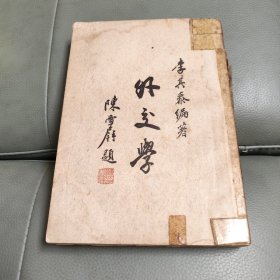 李其泰編著
外交學
陳雪屏題